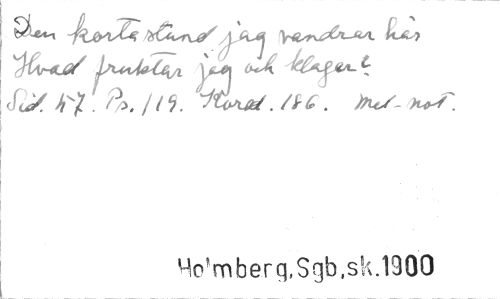 Den korta stund jag vandrar här
Hvad fruktar jag och klagar?
Sid. 47. Ps. 119. Koral. 186. mel-not.
Holmberg, Sgb, sk. 1900